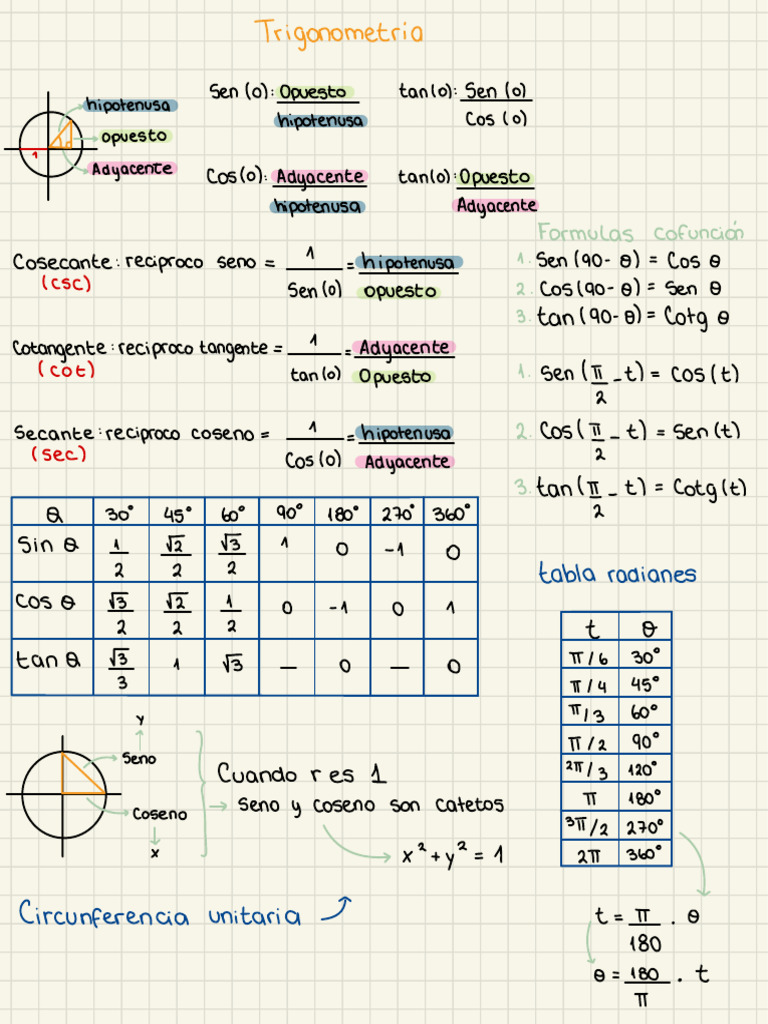 Trigonometria
hipotenusa
opuesto
Adyacente
1
Sen (0): Opuesto / hipotenusa
tan(0): Sen (0) / Cos (0)
Cos(0): Adyacente / hipotenusa
tan(0): Opuesto / Adyacente
Cosecante: reciproco seno = 1 / Sen(0) = hipotenusa / opuesto
(csc)
Cotangente: reciproco tangente = 1 / tan(0) = Adyacente / Opuesto
(cot)
Secante: reciproco coseno = 1 / Cos(0) = hipotenusa / Adyacente
(sec)
Formulas cofunción
1. Sen (90- θ) = Cos θ
2. Cos(90- θ) = Sen θ
3. tan(90- θ) = Cotg θ
1. Sen (π/2 - t) = COS (t)
2. Cos (π/2 - t) = Sen (t)
3. tan (π/2 - t) = Cotg (t)
θ 30° 45° 60° 90° 180° 270° 360°
Sin θ 1/2 √2/2 √3/2 1 0 -1 0
Cos θ √3/2 √2/2 1/2 0 -1 0 1
tan θ √3/3 1 √3 — 0 — 0
tabla radianes
t θ
π/6 30°
π/4 45°
π/3 60°
π/2 90°
2π/3 120°
π 180°
3π/2 270°
2π 360°
t = π/180 . θ
θ = 180/π . t
y
Seno
Coseno
x
Cuando r es 1
Seno y coseno son catetos
x² + y² = 1
Circunferencia unitaria